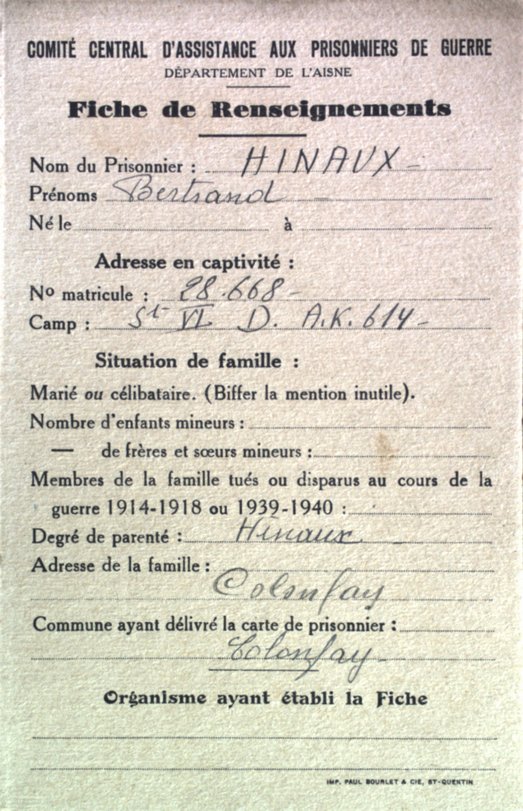 COMITÉ CENTRAL D'ASSISTANCE AUX PRISONNIERS DE GUERRE
DÉPARTEMENT DE L'AISNE
Fiche de Renseignements
Nom du Prisonnier : HINAUX -
Prénoms Bertrand
Né le à
Adresse en captivité :
No matricule : 28.668 -
Camp : St VI D. A.K. 614 -
Situation de famille :
Marié ou célibataire. (Biffer la mention inutile).
Nombre d'enfants mineurs :
— de frères et sœurs mineurs :
Membres de la famille tués ou disparus au cours de la
guerre 1914-1918 ou 1939-1940 :
Degré de parenté : Hinaux
Adresse de la famille :
Colonfay
Commune ayant délivré la carte de prisonnier :
Colonfay -
Organisme ayant établi la Fiche
IMP. PAUL BOURLET & CIE, ST-QUENTIN